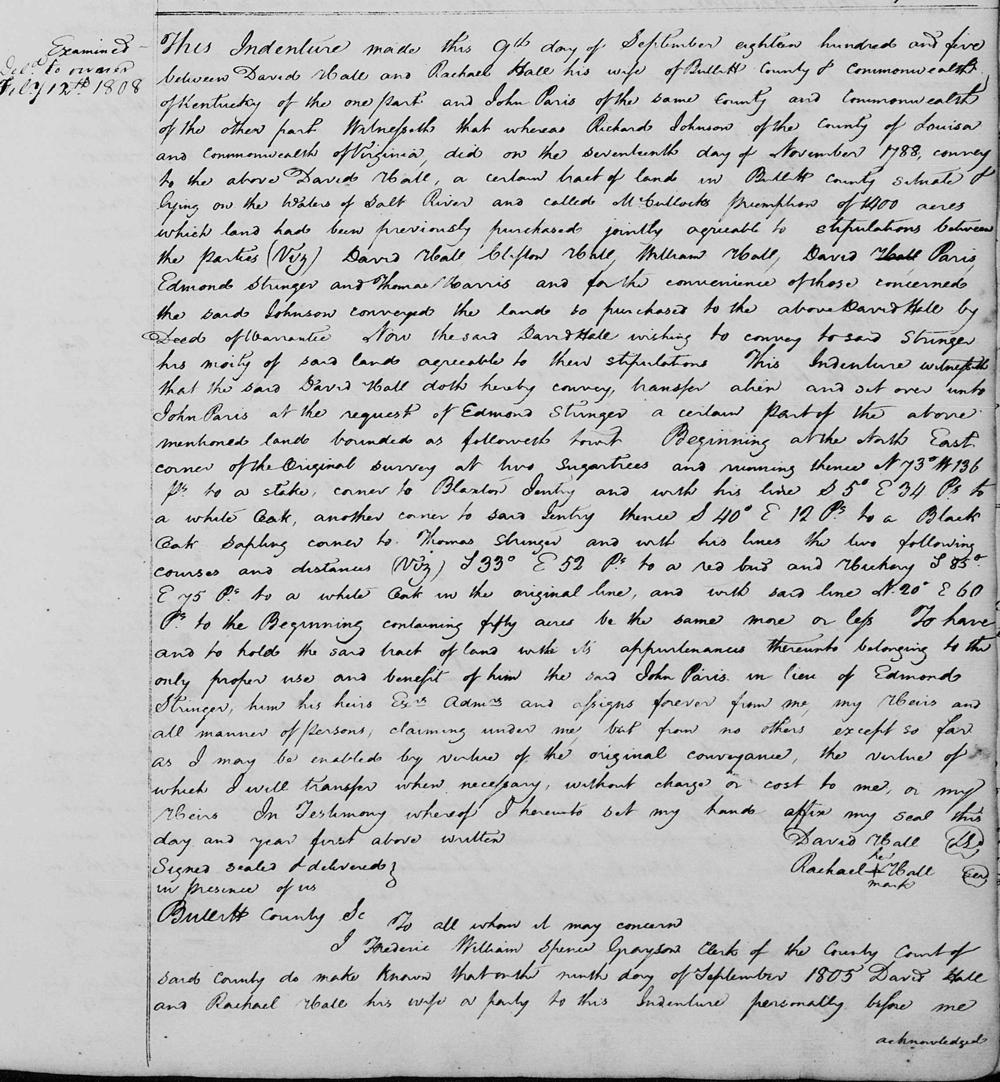 Examined
Deld to owner
Feby 12th 1808
This Indenture made this 9th day of September eighteen hundred and five
between David Hall and Rachael Hall his wife of Bullitt County & Commonwealth
of Kentucky of the one part and John Paris of the same County and Commonwealth
of the other part Witnesseth that whereas Richard Johnson of the County of Louisa
and Commonwealth of Virginia, did on the seventeenth day of November 1788, convey
to the above David Hall, a certain tract of land in Bullitt County situate &
lying on the Waters of Salt River and called McCullocks premption of 1400 acres
which land had been previously purchased jointly agreable to stipulations between
the parties (Viz) David Hall Clifton Hall, William Hall, David Hall Paris,
Edmond Stringer and Thomas Harris and for the convenience of those concerned
the said Johnson conveyed the land so purchased to the above David Hall by
Deed of Warrantie Now the said David Hall wishing to convey to said Stringer
his moity of said land agreeable to their stipulations This Indenture witnesseth
that the said David Hall doth hereby convey, transfer alien and set over unto
John Paris at the request of Edmond Stringer a certain part of the above
mentioned land bounded as followeth towit Beginning at the North East
corner of the Original survey at two sugartrees and running thence N 73° W 136
Ps to a stake, corner to Blaxton Jentry and with his line S 5° E 34 Ps to
a white Oak, another corner to said Jentry thence S 40° E 12 Ps to a Black
Oak sapling corner to Thomas Stringer and with his lines the two following
courses and distances (Viz) S 33° E 52 Ps to a red bud and Hickory S 85°
E 75 Ps to a white Oak in the original line, and with said line N. 20° E 60
Ps to the Beginning containing fifty acres be the same more or less To have
and to hold the said tract of land with its appurtenances thereunto belonging to the
only proper use and benefit of him the said John Paris in lieu of Edmond
Stringer, him his heirs Exrs Admrs and assigns forever from me, my Heirs and
all manner of persons, claiming under me, but from no others except so far
as I may be enabled by virtue of the original conveyance, the virtue of
which I will transfer when necessary, without charge or cost to me, or my
Heirs In Testimony whereof I hereunto set my hand affix my seal this
day and year first above written David Hall
Signed sealed & delivered } Rachael her + mark Hall
in presence of us
Bullitt County Sc To all whom it may concern
I Frederic William Spence Grayson Clerk of the County Court of
said County do make known that on the ninth day of September 1805 David Hall
and Rachael Hall his wife a party to this Indenture personally before me
acknowledged